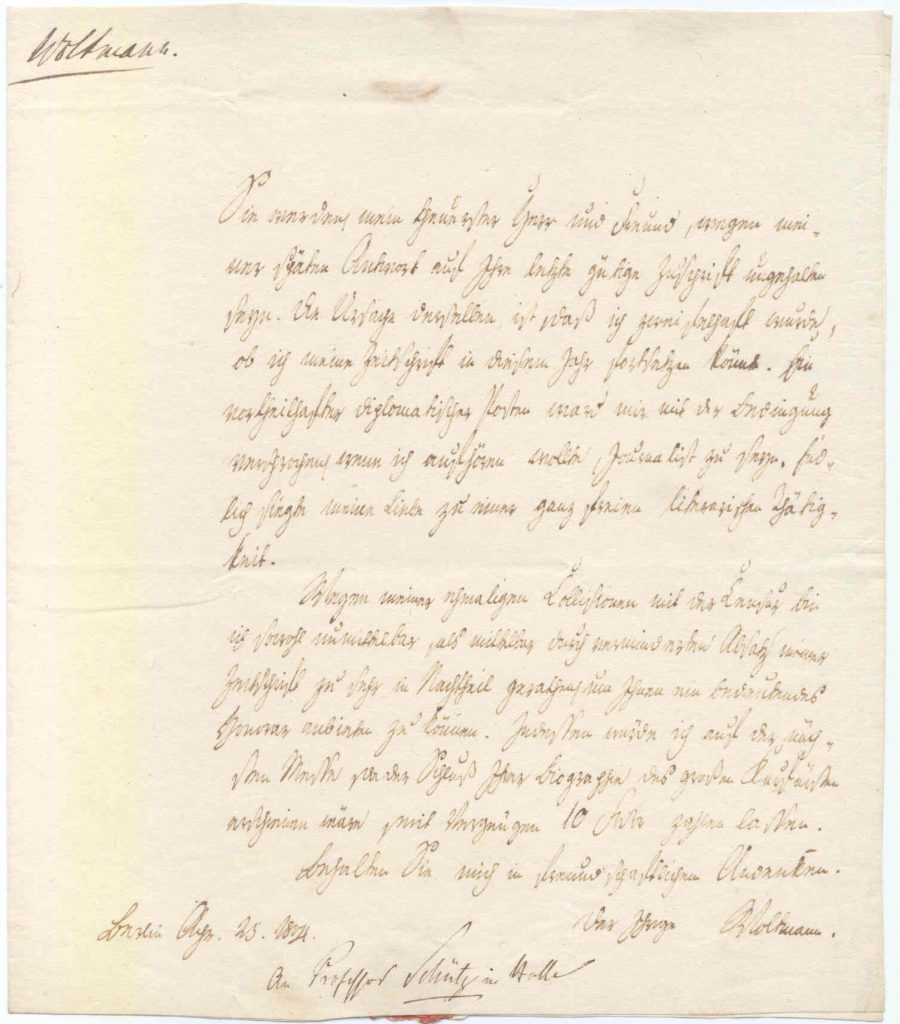 Woltmann.
Sie werden, mein theuerster Herr und Freund, wegen mei-
ner späten Antwort auf Ihre letzte gütige Zuschrift ungehalten
seyn. Die Ursache derselben ist, daß ich zweifelhaft wurde,
ob ich meine Zeitschrift in diesem Jahr fortsetzen könne. Ein
vortheilhafter diplomatischer Posten ward mir mit der Bedingung
versprochen, wenn ich aufhören wollte, Journalist zu seyn. End-
lich siegte meine Liebe zu einer ganz freien literarischen Thätig-
keit.
Wegen meiner ehmaligen Collisionen mit der Censur bin
ich sowohl unmittelbar, als mittelbar durch verminderten Absatz meiner
Zeitschrift zu sehr in Nachtheil gerathen, um Ihnen ein bedeutendes
Honorar anbieten zu können. Indessen würde ich auf der näch-
sten Messe, wo der Schluß Ihrer Biographie des großen Kurfürsten
erschienen wäre, mit Vergnügen 10 zahlen lassen.
Behalten Sie mich in freundschaftlichem Andenken.
Berlin Apr. 25. Der Ihrige Woltmann.
An Professor Schütz in Halle